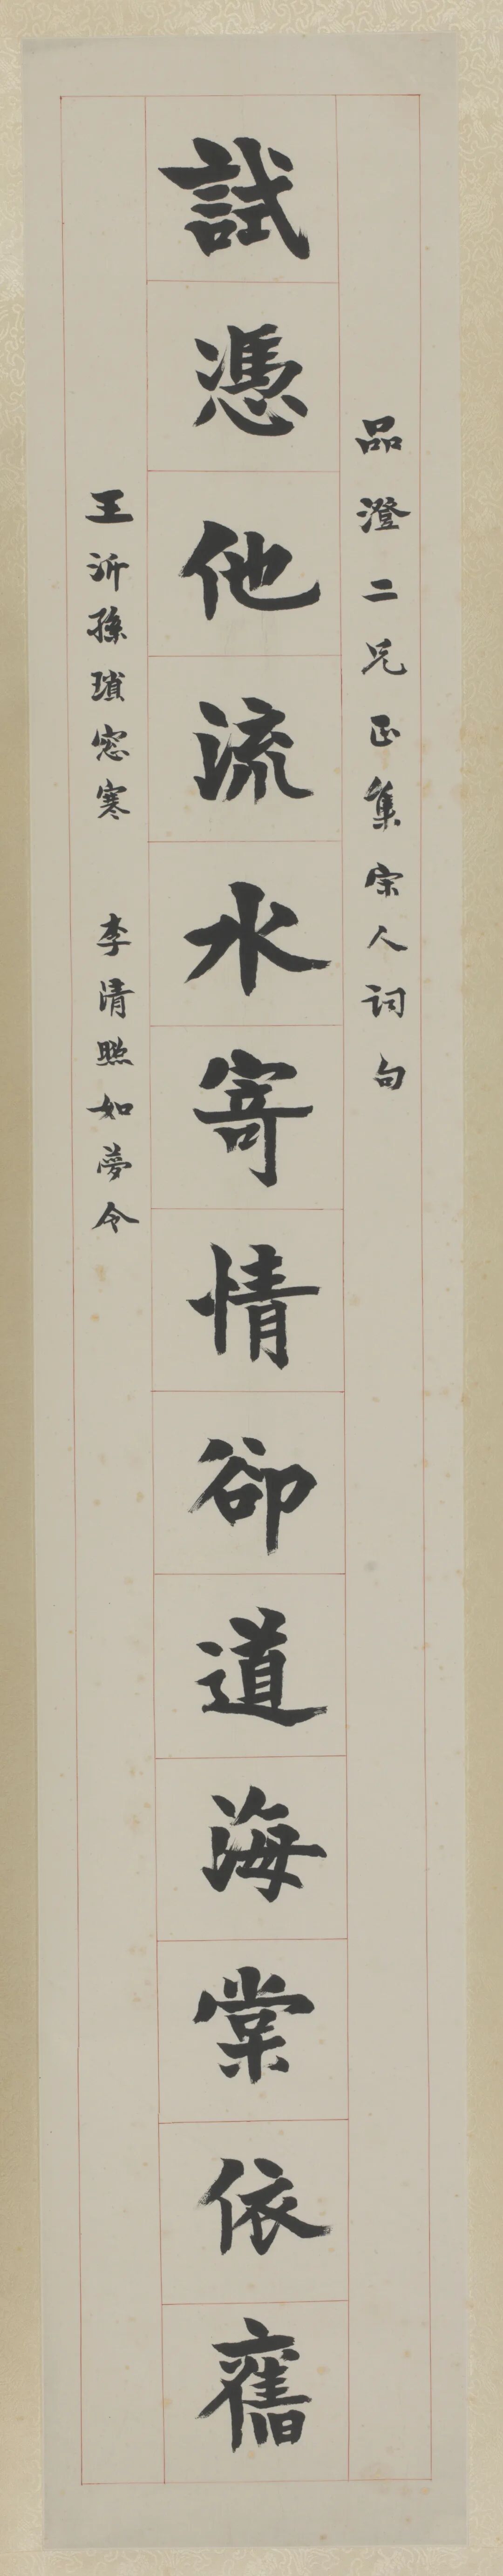 品澄二兄正集宋人詞句
試憑他流水寄情卻道海棠依舊
王沂孫瑣窓寒　李清照如夢令